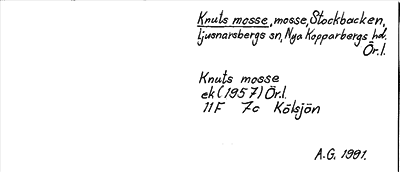 Knuts mosse, mosse, Stockbacken,
Ljusnarsbergs sn, Nya Kopparbergs hd.
Ör.l.
Knuts mosse
ek (1957) Ör.l.
11F 7c Kölsjön
A.G. 1991.